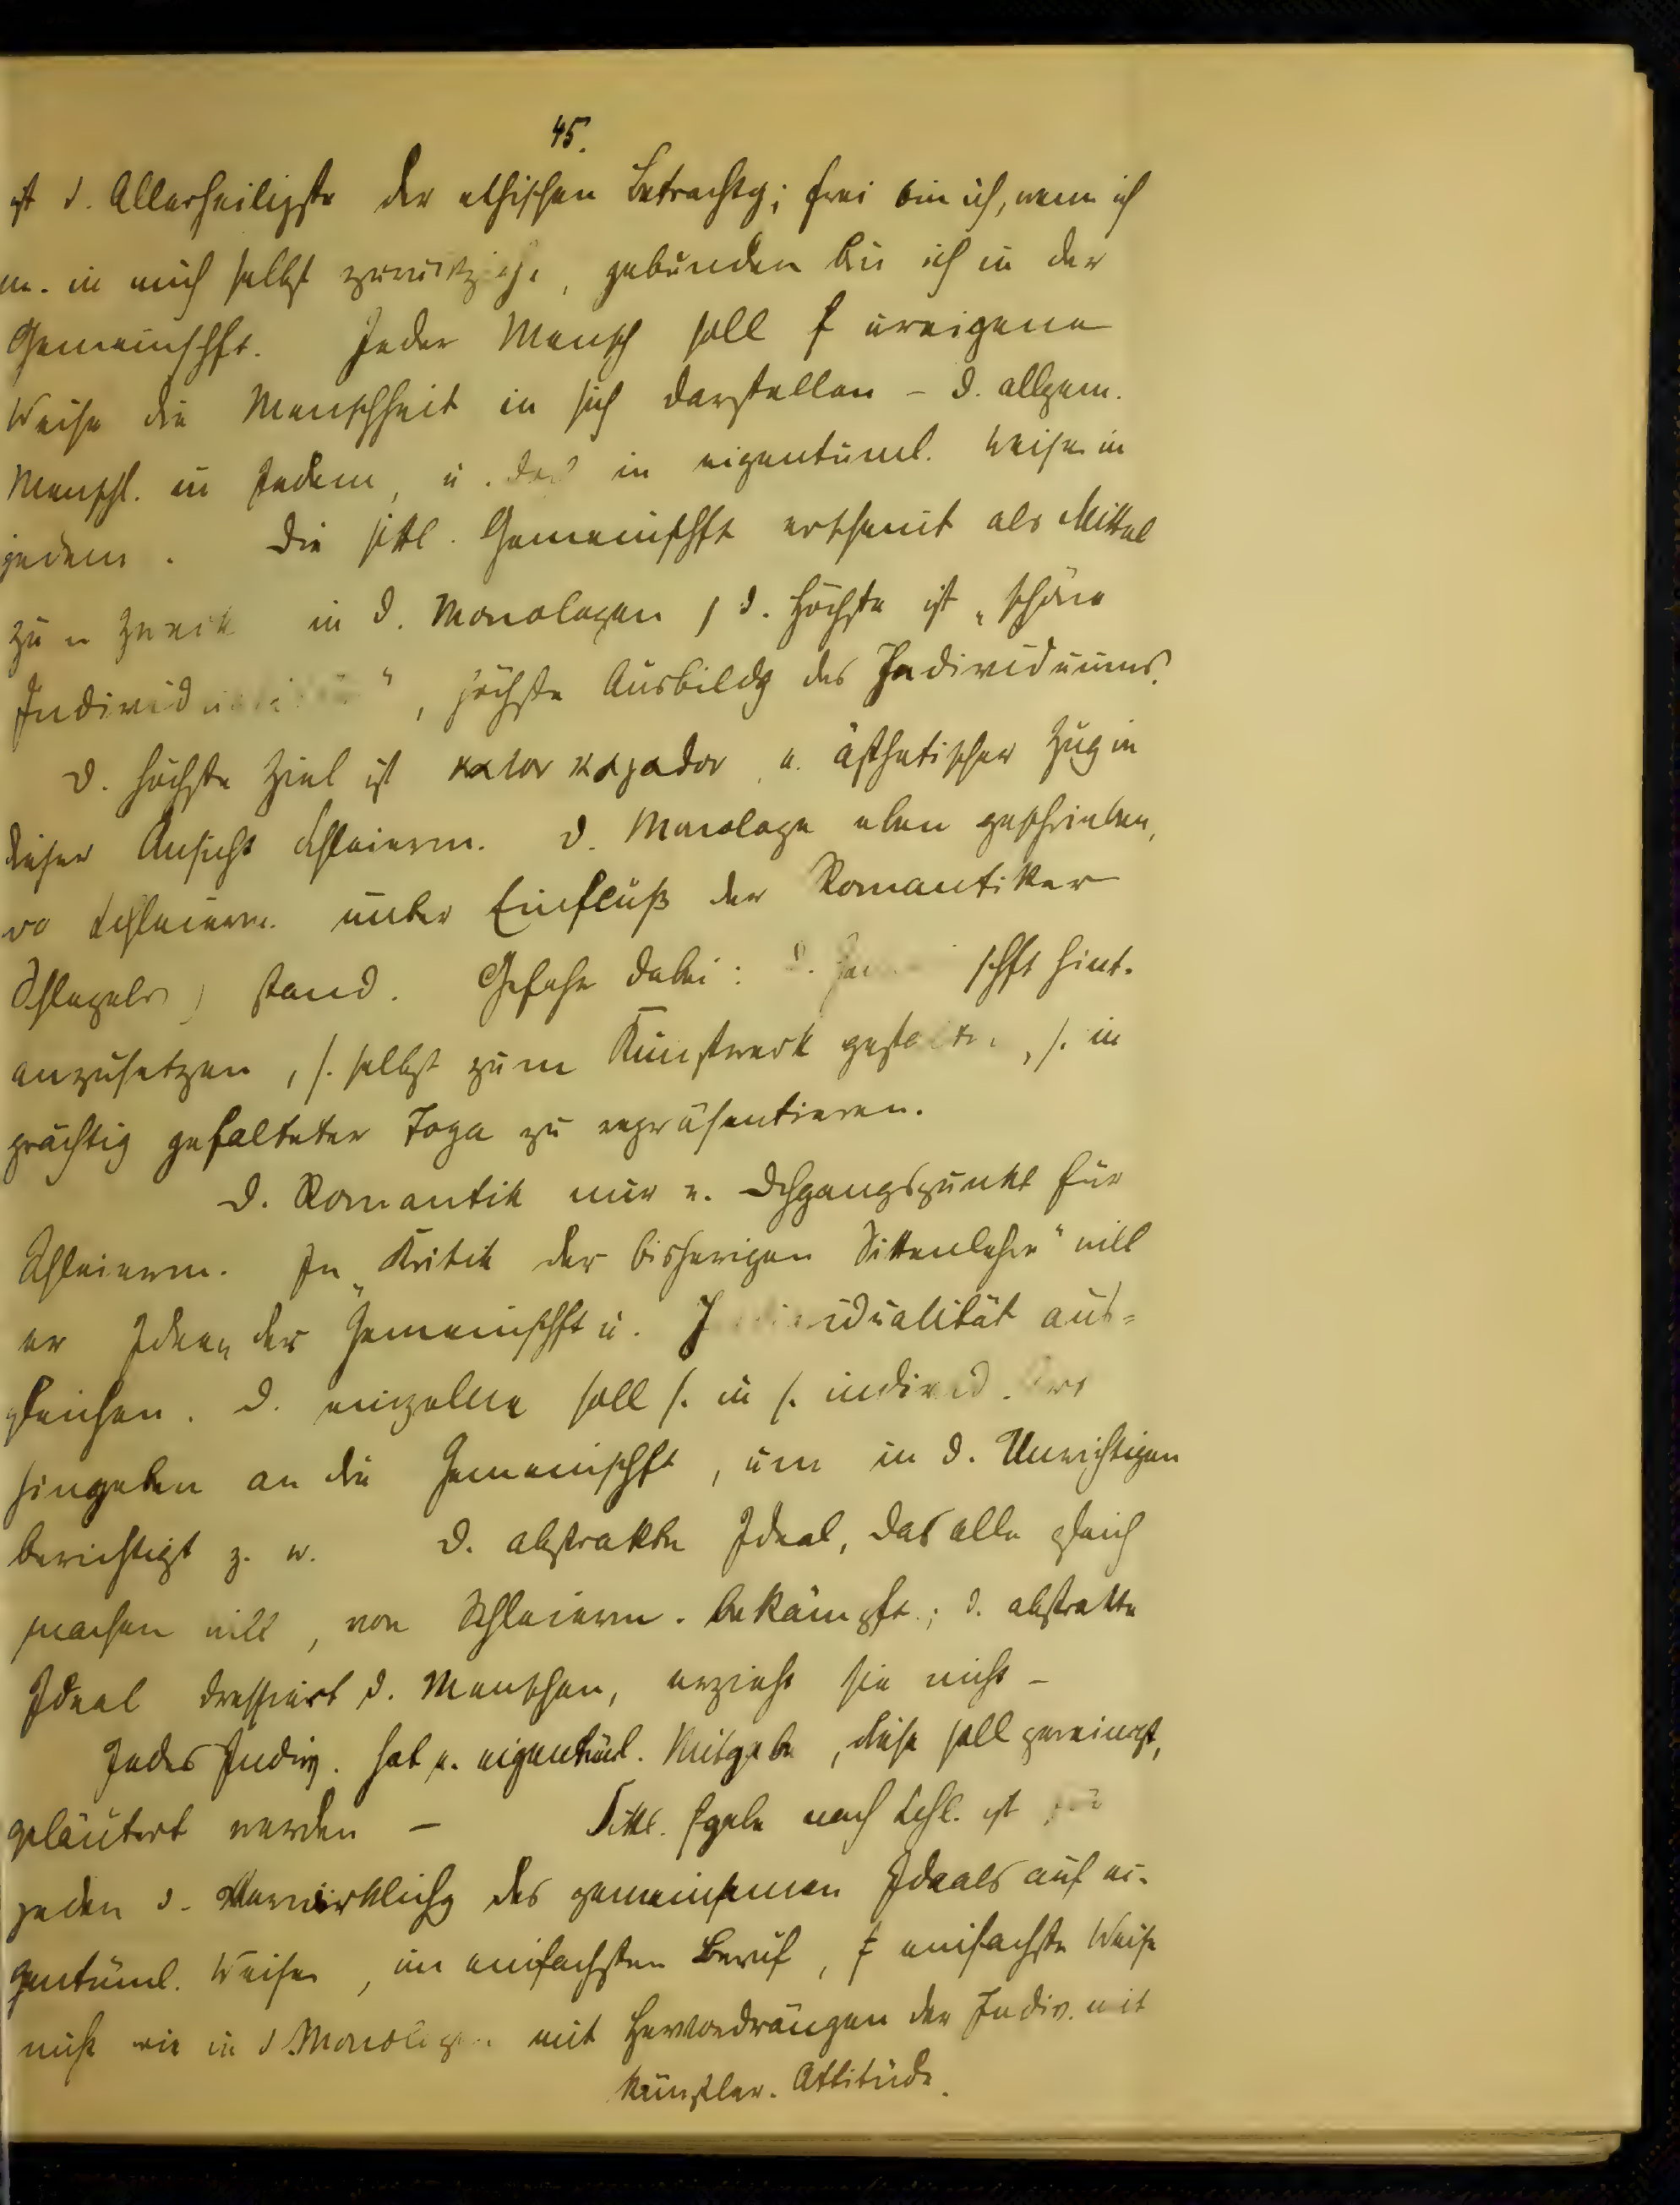 45.
ist d. Allerheiligste der ethischen Betrachtg; frei bin ich, wenn ich
m. in mich selbst zurückziehe, gebunden bin ich in der
Gemeinschft. Jeder Mensch soll ureigene
Weise die Menschheit in sich darstellen - d. allgem.
Menschl. in Jedem, u. das in eigentüml. Weise in
jedem. Die sittl. Gemeinschft erscheint als Mittel
zum Zweck in d. Monologen, d. Höchste ist "schöne
Individualität", höchste Ausbildg des Individuums.
D. höchste Ziel ist καλον καγαθον, e. ästhetischer Zug in
dieser Ansicht Schleierm. D. Monologe eben geschrieben,
wo Schleierm. unter Einfluß der Romantiker
Schlegels) stand. Gefahr dabei: d. schft hint-
anzusetzen, s. selbst zum Kunstwerk gestalten, s. in
prächtig gefalteter Toga zu repräsentieren.
D. Romantik nur e. Dchgangspunkt für
Schleierm. In "Kritik der bisherigen Sittenlehre" will
er Ideen der Gemeinschft u. Individualität aus=
gleichen. D. einzelne soll s. in s. individ. Art
hingeben an die Gemeinschft, um in d. Unrichtigen
berichtigt z. w. D. abstrakte Ideal, das alle gleich
machen will, von Schleierm. bekämpft; d. abstrakte
Ideal dressiert d. Menschen, erzieht sie nicht -
Jedes Indiv. hat e. eigentüml. Mitgabe, diese soll gereinigt,
geläutert werden - Sittl. nach Schl. ist für
jeden d. Verwirklichg des gemeinsamen Ideals auf ei-
gentüml. Weise, im einfachsten Beruf, einfachste Weise
nicht wie in d. Monologen mit Hervordrängen der Indiv. mit
künstler. Attitüde.